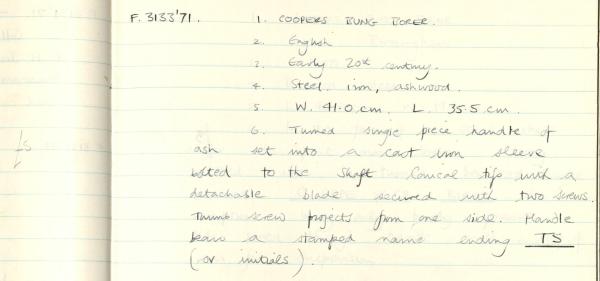 F.3133'71. 1. COOPERS BUNG BORER.
2. English
3. Early 20th century.
4. Steel, iron, ashwood.
5 W. 41.0 cm. L. 35.5 cm.
6. Turned single piece handle of
ash set into a cast iron sleeve
bolted to the shaft Conical tip with a
detachable blade secured with two screws.
Thumb screw projects from one side. Handle
bears a stamped name ending TS
(or initials).